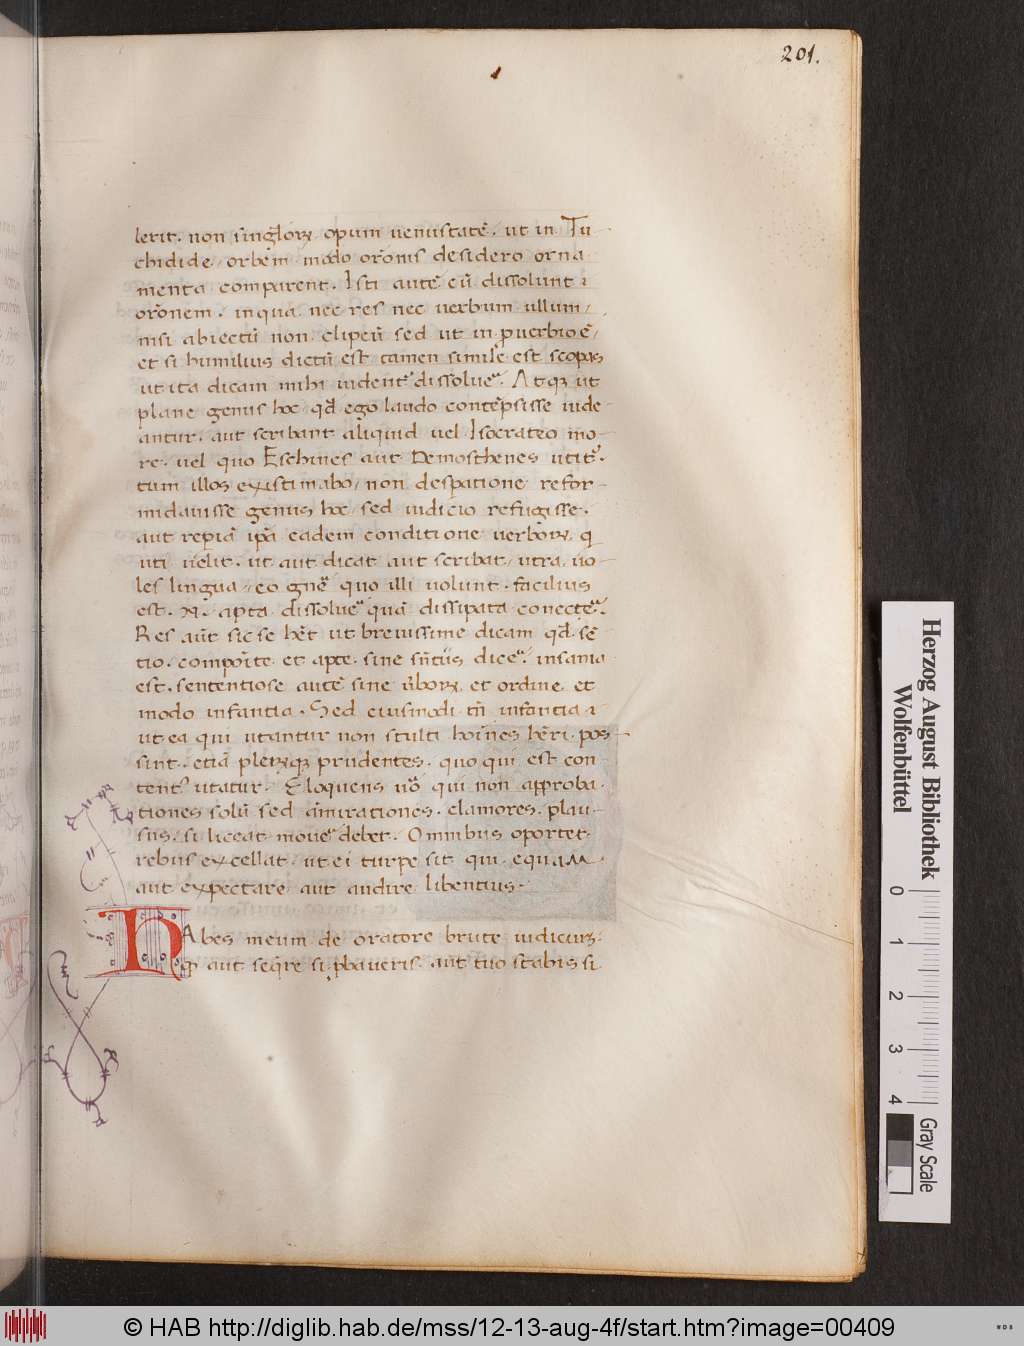 201.
lerit. non singłorꝝ opum uenustatē, ut in Tu
chidide, orbem modo orōnis desidero orna
menta comparent. Isti autē cū dissoluunt
orōnem, in qua nec res nec uerbum ullum,
nisi abiectū non clipeū sed ut in puerbio ē,
et si humilius dictū est tamen simile est scopas
ut ita dicam mihi uident᷑ dissolue᷑. Atqꝫ ut
plane genus hoc qđ ego laudo contēpsisse uide
antur. aut scribant aliquid uel Isocrateo mo
re. uel quo Eschines aut Demosthenes utit᷑.
tum illos existimabo, non despatione refor
midauisse genus hoc, sed iudicio refugisse.
aut repiā ipā eadem conditione uerborꝝ q
uti uelit. ut aut dicat aut scribat, utra uo
les lingua, eo gn̄e quo illi uolunt. facilius
est. N̄. apta dissolue᷑ quā dissipata conecte᷑.
Res aūt sic se h̄et ut breuissime dicam qđ sē
tio. composite et apte sine sn̄tiis dice᷑ insania
est. sententiose autē sine ūborꝝ et ordine et
modo infantia. Sed eiusmodi tn̄ infantia
ut ea qui utantur non stulti hoīnes hēri pos
sint. etiā plerꝝqꝫ prudentes. quo qui est con
tent᷒ utatur. Eloquens uō qui non approba
tiones solū sed am̄irationes. clamores. plau
sus. si liceat mouē debet. Omnibus oportet
rebus excellat, ut ei turpe sit qui equam
aut expectare aut audire libentius.
HAbes meum de oratore brute iudiciuꝫ.
qƿ aut seq̄re si pbaueris. aut tuo stabis si
Herzog August Bibliothek
Wolfenbüttel
0 1 2 3 4
Gray Scale
© HAB http://diglib.hab.de/mss/12-13-aug-4f/start.htm?image=00409